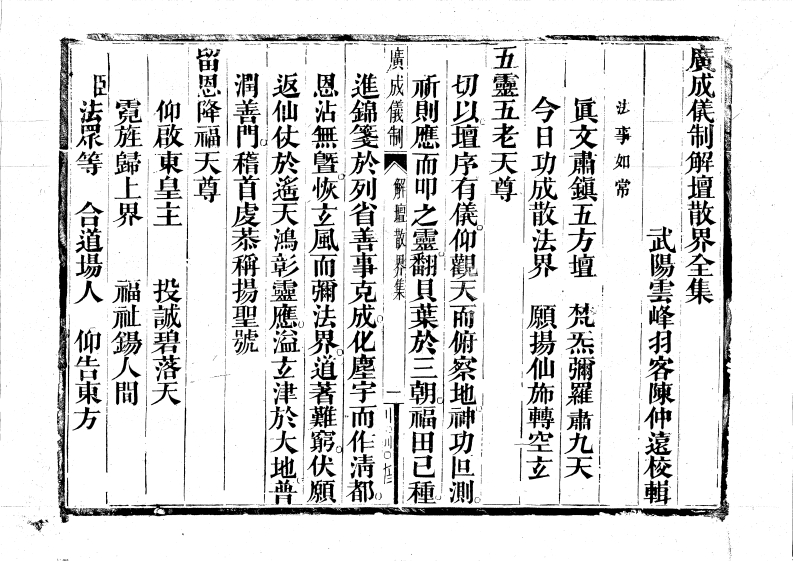 廣成儀制解壇散界全集
武陽雲峰羽客陳仲遠校輯
法事如常
眞文肅鎭五方壇　梵炁彌羅肅九天
今日功成散法界　願揚仙斾轉空玄
五靈五老天尊
切以壇序有儀仰觀天而俯察地神功叵測
祈則應而叩之靈翻貝葉於三朝福田已種
廣成儀制　解壇散界集　一
進錦箋於列省善事克成化塵宇而作清都
恩沾無曁恢玄風而彌法界道著難窮伏願
返仙仗於遙天鴻彰靈應溢玄津於大地普
潤善門稽首虔恭稱揚聖號
留恩降福天尊
仰啟東皇主　投誠碧落天
霓旌歸上界　福祉錫人間
臣法眾等　合道場人　仰告東方